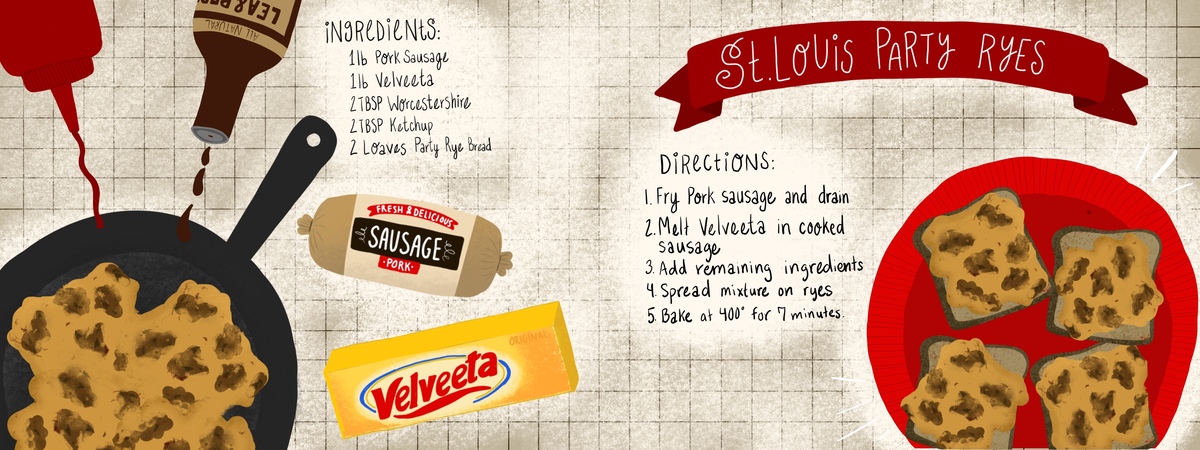 ALL NATURAL
INGREDIENTS:
1lb Pork Sausage
1lb Velveeta
2TBSP Worcestershire
2TBSP Ketchup
2 Loaves Party Rye Bread
FRESH & DELICIOUS
SAUSAGE
PORK
ORIGINAL
Velveeta
St. Louis Party Ryes
DIRECTIONS:
1. Fry Pork sausage and drain
2. Melt Velveeta in cooked
sausage
3. Add remaining ingredients
4. Spread mixture on ryes
5. Bake at 400° for 7 minutes.